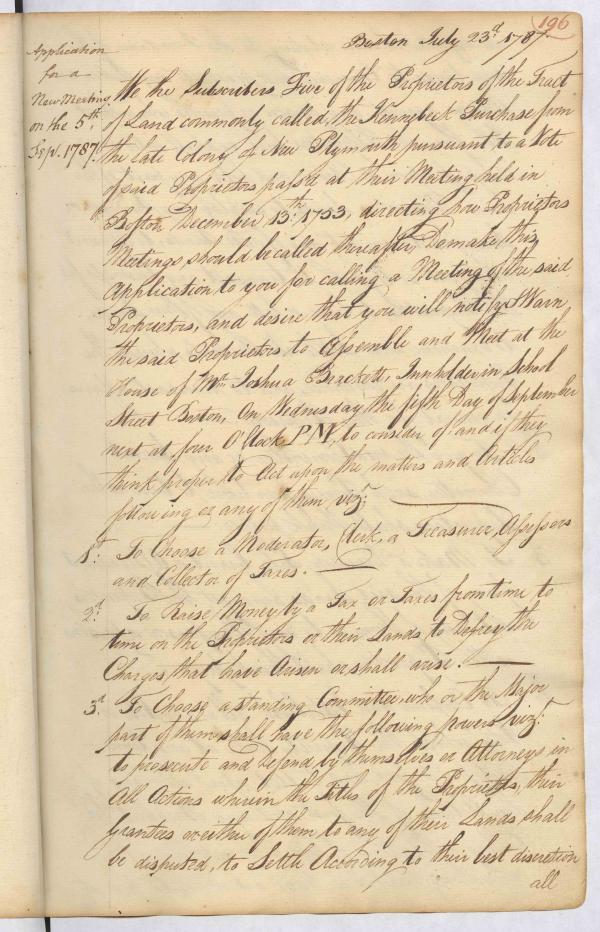 196
Boston July 23d. 1787.
Application
for a
New Meeting
on the 5th.
Sep. 1787.
We the Subscribers Five of the Proprietors of the Tract
of Land commonly called, the Kennybeck Purchase from
the late Colony of New Plymouth pursuant to a Vote
of said Proprietors passed at their Meeting held in
Boston December 13th. 1753, directing how Proprietors
Meetings should be called thereafter, Do make this
Application, to you for calling a Meeting of the said
Proprietors, and desire that you will notify & Warn
the said Proprietors to Assemble and Meet at the
House of Mr. Joshua Brackett, Innholder, in School
Street Boston, On Wednesday the fifth Day of September
next at four O'Clock P M, to consider of and if they
think proper to Act upon the matters and Articles
following or any of them, vizt.
1st. To Choose a Moderator, Clerk, a Treasurer, Assessors
and Collector of Taxes. —
2d. To Raise Money by a Tax or Taxes from time to
time on the Proprietors or their Lands to Defrey the
Charges that have Arisen or shall arise. —
3d. To Choose a standing Committee, who or the Major
part of them shall have the following powers vizt.
to prosecute and Defend by themselves or Attorneys in
All Actions wherein the Titles of the Proprietors, their
Grantees or either of them to any of their Lands shall
be disputed, to Settle According to their best discretion
all